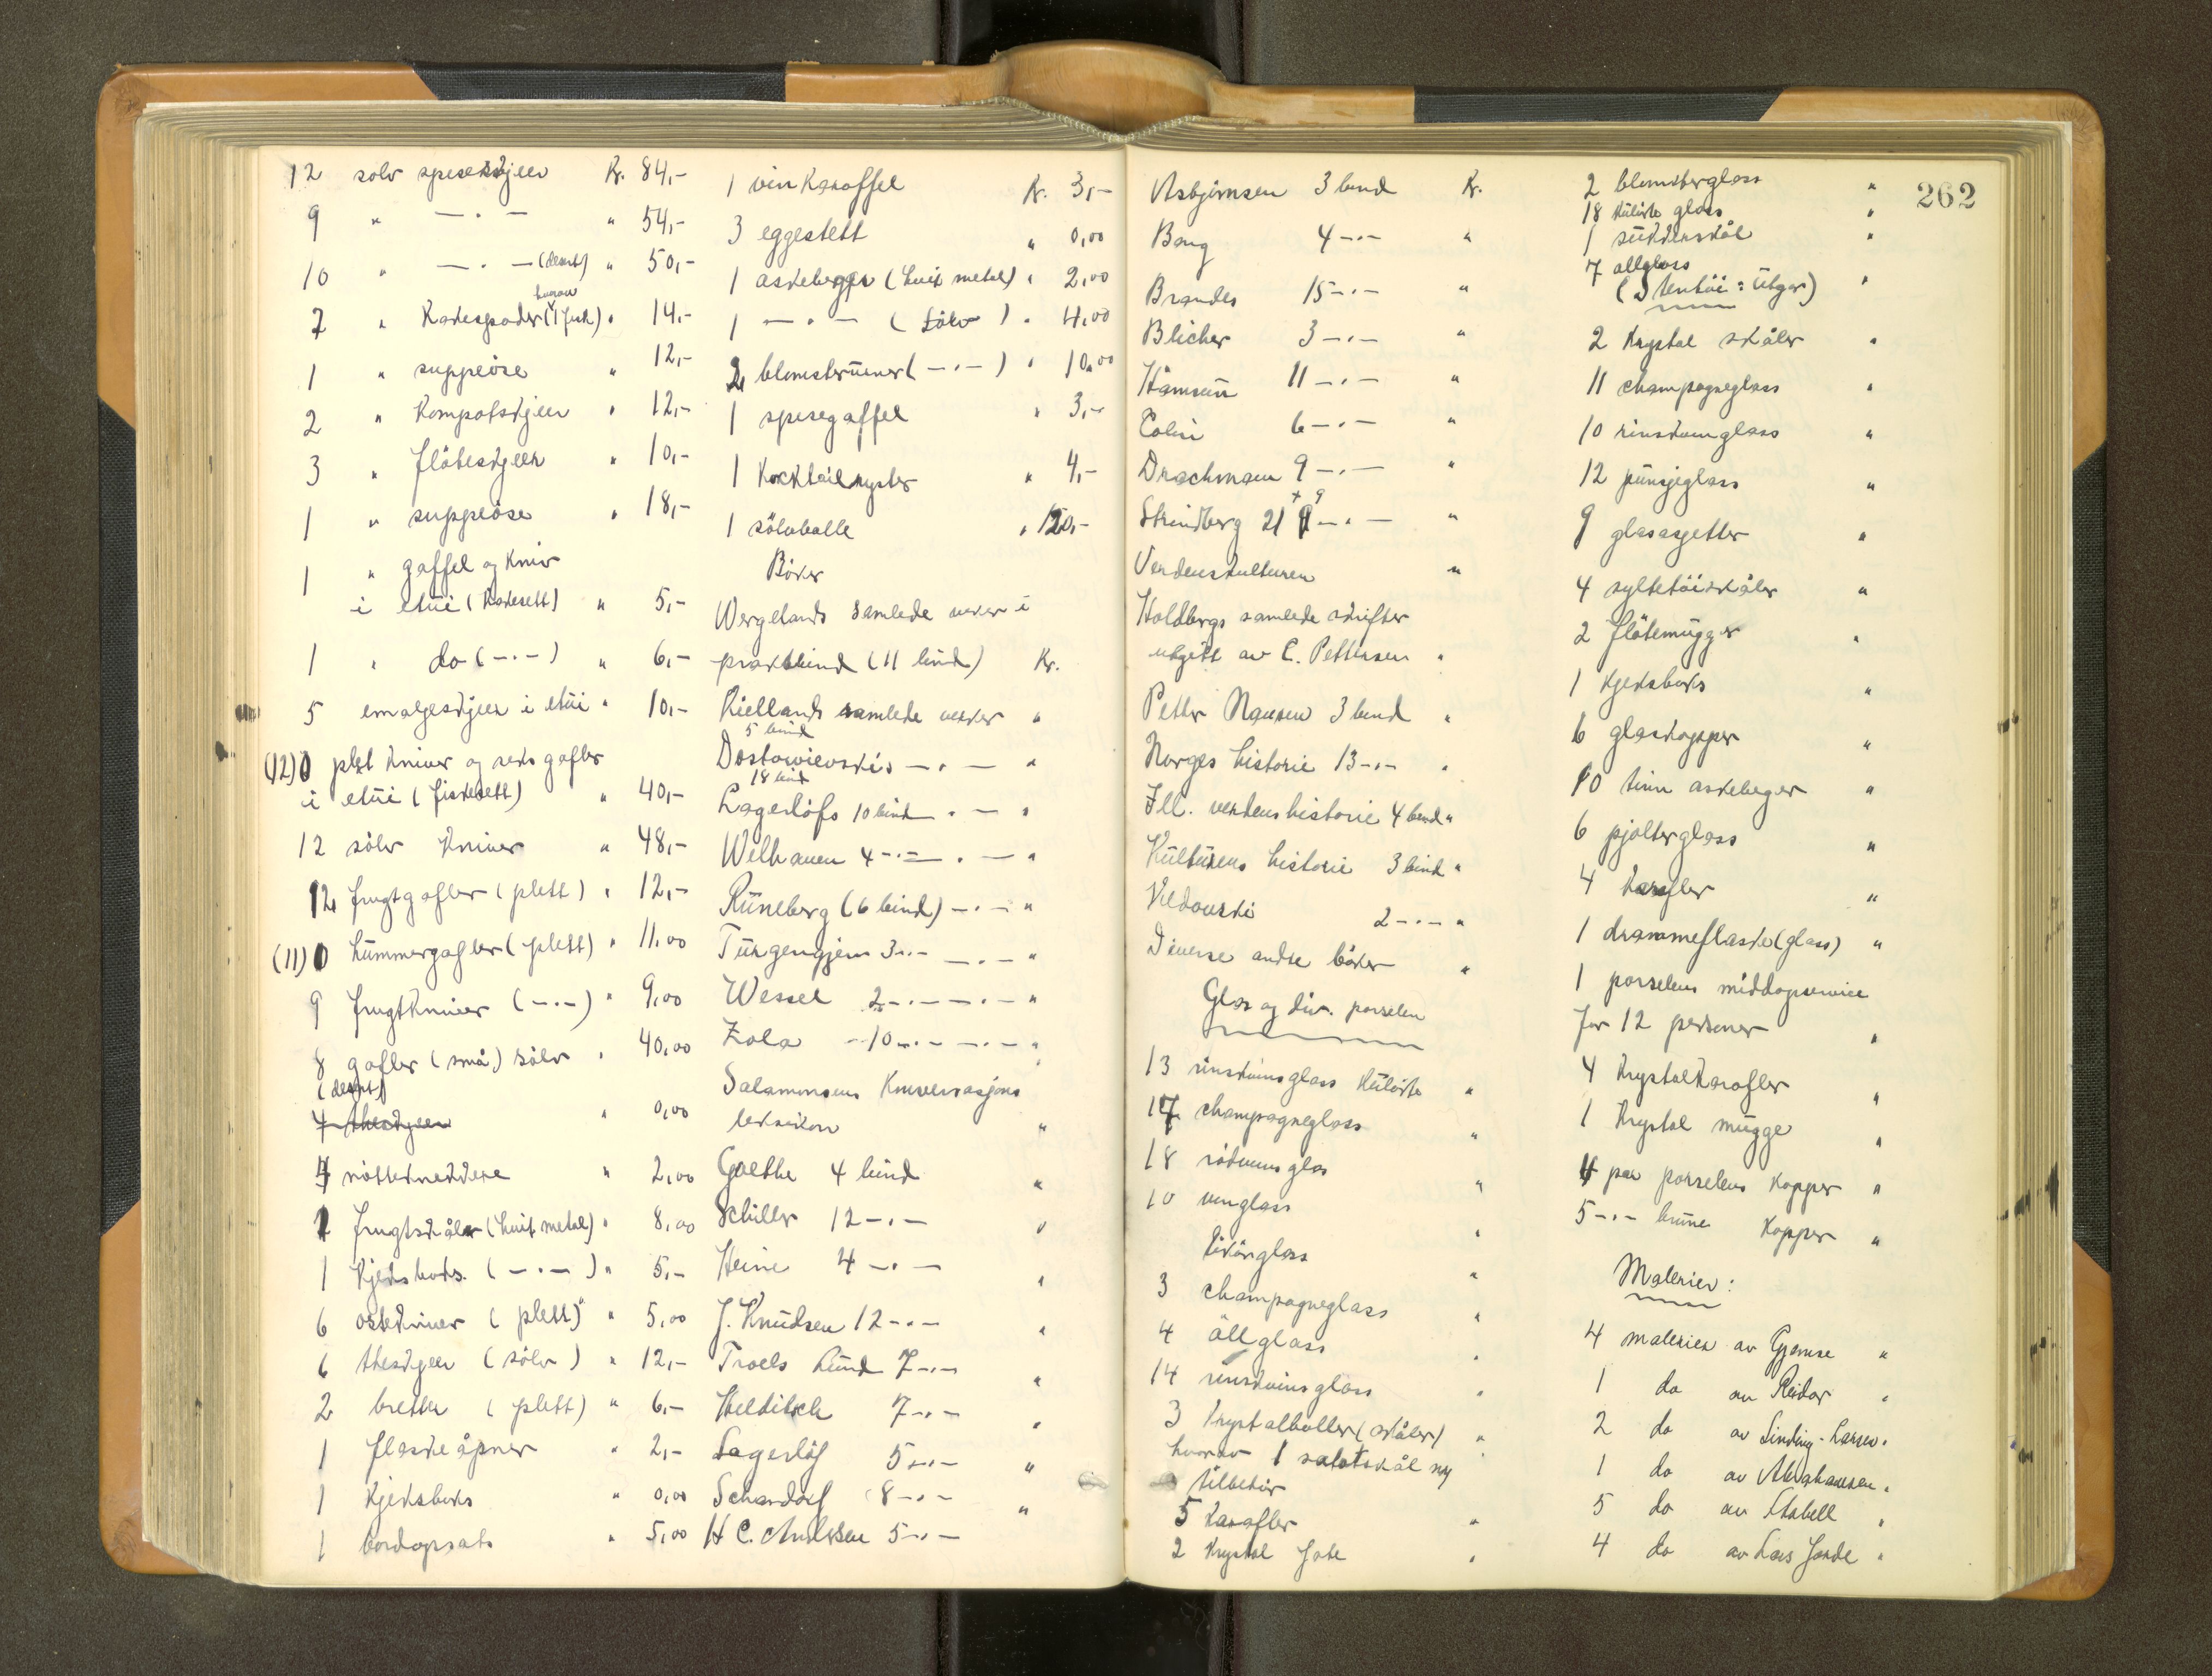 12 sölv spiseskjeer Kr. 84,-
9 " — . — " 54,-
10 " — . — (desert) " 50,-
hvorav
7 " Kakespader (1 fisk) " 14,-
1 " suppeöse " 12,-
2 " Kompotskjeer " 12,-
3 " flöteskjeer " 10,-
1 " suppeöse " 18,-
1 " gaffel og Kniv
i etüi (Kakesett) " 5,-
1 " do (-.-) " 6,-
5 emaljeskjeer i etüi " 10,-
(12) 0 plet Kniver og seks gafler
i etüi (fiskesett) " 40,-
12 sölv Kniver " 48,-
12 frugtgafler (plett) " 12,-
(11) 0 hümmergafler (plett) " 11,00
9 frugtkniver (-.-) " 9,00
8 gafler (små) sölv " 40,00
(desert)
4 theskjeer " 0,00
7 nötteknekkere " 2,00
1 frugtskåler (hvit metal) " 8,00
1 Kjeksboks. (-.-) " 5,-
6 ostekniver (plett) " 5,00
6 theskjeer (sölv) " 12,-
2 bretter (plett) " 6,-
1 flaskeåpner " 2,-
1 Kjeksboks " 0,00
1 bordopsats " 5,00
1 vin Karaffel Kr. 3,-
3 eggestett " 0,00
1 askebeger (hvit metal) " 2,00
1 — . — (sölv) " 4,00
2 blomstervaser (-.-) " 10,00
1 spisegaffel " 3,-
1 Kocktailryster " 4,-
1 sölvbolle " 120,-
Böker
Wergelands samlede verker i
praktbind (11 bind) Kr.
Kiellands samlede verker "
5 bind
Dostoievskis — . — "
18 bind
Lagerlöfs 10 bind . — "
Welhaven 4 -.- . — "
Rüneberg (6 bind) -.- "
Türgenjew 3 -.- -.- "
Wessel 2 -.- -.- "
Zola 10 -.- -.- "
Salamonsens Konversasjons
leksikon "
Goethe 4 bind "
Schiller 12 -.- "
Heine 4 -.- "
J. Knüdsen 12 -.- "
Troels Lünd 7 -.- "
Helditsch 7 -.- "
Lagerlöf 5 -.- "
Schandorf 8 -.- "
H C. Andersen 5 -.-
Asbjörnsen 3 bind Kr.
Bang 4 -.- "
Brandes 15 -.- "
Blicher 3 -.- "
Hamsün 11 -.- "
Colin 6 -.- "
Drachmann 9 -.- "
+ 9
Strindberg 21 -.- "
Verdenskulturen "
Holdbergs samlede skrifter
utgitt av C. Pettersen "
Petter Nansen 3 bind "
Norges historie 13 -.- "
Ill. verdenshistorie 4 bind "
Kültürens historie 3 bind "
2 -.- "
Diverse andre böker "
Glas og div. porselen
13 rinskvinsglass külörte "
17 champagneglass "
18 rödvinsglas "
10 vinglass "
likörglass "
3 champagneglass "
4 öllglass "
14 rinskvinsglass "
3 Krystalboller (skåler) "
hvorav 1 salatskål m/
tilbehör
5 karafler "
2 Krystal fate "
262
2 blomsterglass "
18 külörte glass "
1 sükkerskål "
7 ollglass
(Stentöi: Utgår) "
2 Krystal skåler "
11 champagneglass "
10 rinskvinglass "
12 pünsjeglass "
9 glassasjetter "
4 syltetöiskåler "
2 flötemügger "
1 Kjeksboks "
6 glaskopper "
10 tinn askebeger "
6 pjolterglass "
4 Karafler "
1 drammeflaske (glass) "
1 porselens middagservice
for 12 personer "
4 Krystalkarafler "
1 Krystal mügge "
4 par porselens Kopper "
5 -.- brüne Kopper "
Malerier:
4 malerier av "
1 do av Reidar "
2 do av Sinding-Larsen "
1 do av Abrahamsen "
5 do av Stabell "
4 do av Lars Jorde "